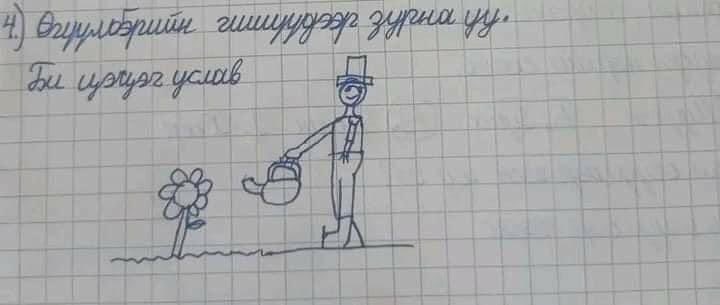 4.) Өгүүлбэрийн гишүүдээр зурна уу.
Би цэцэг услав